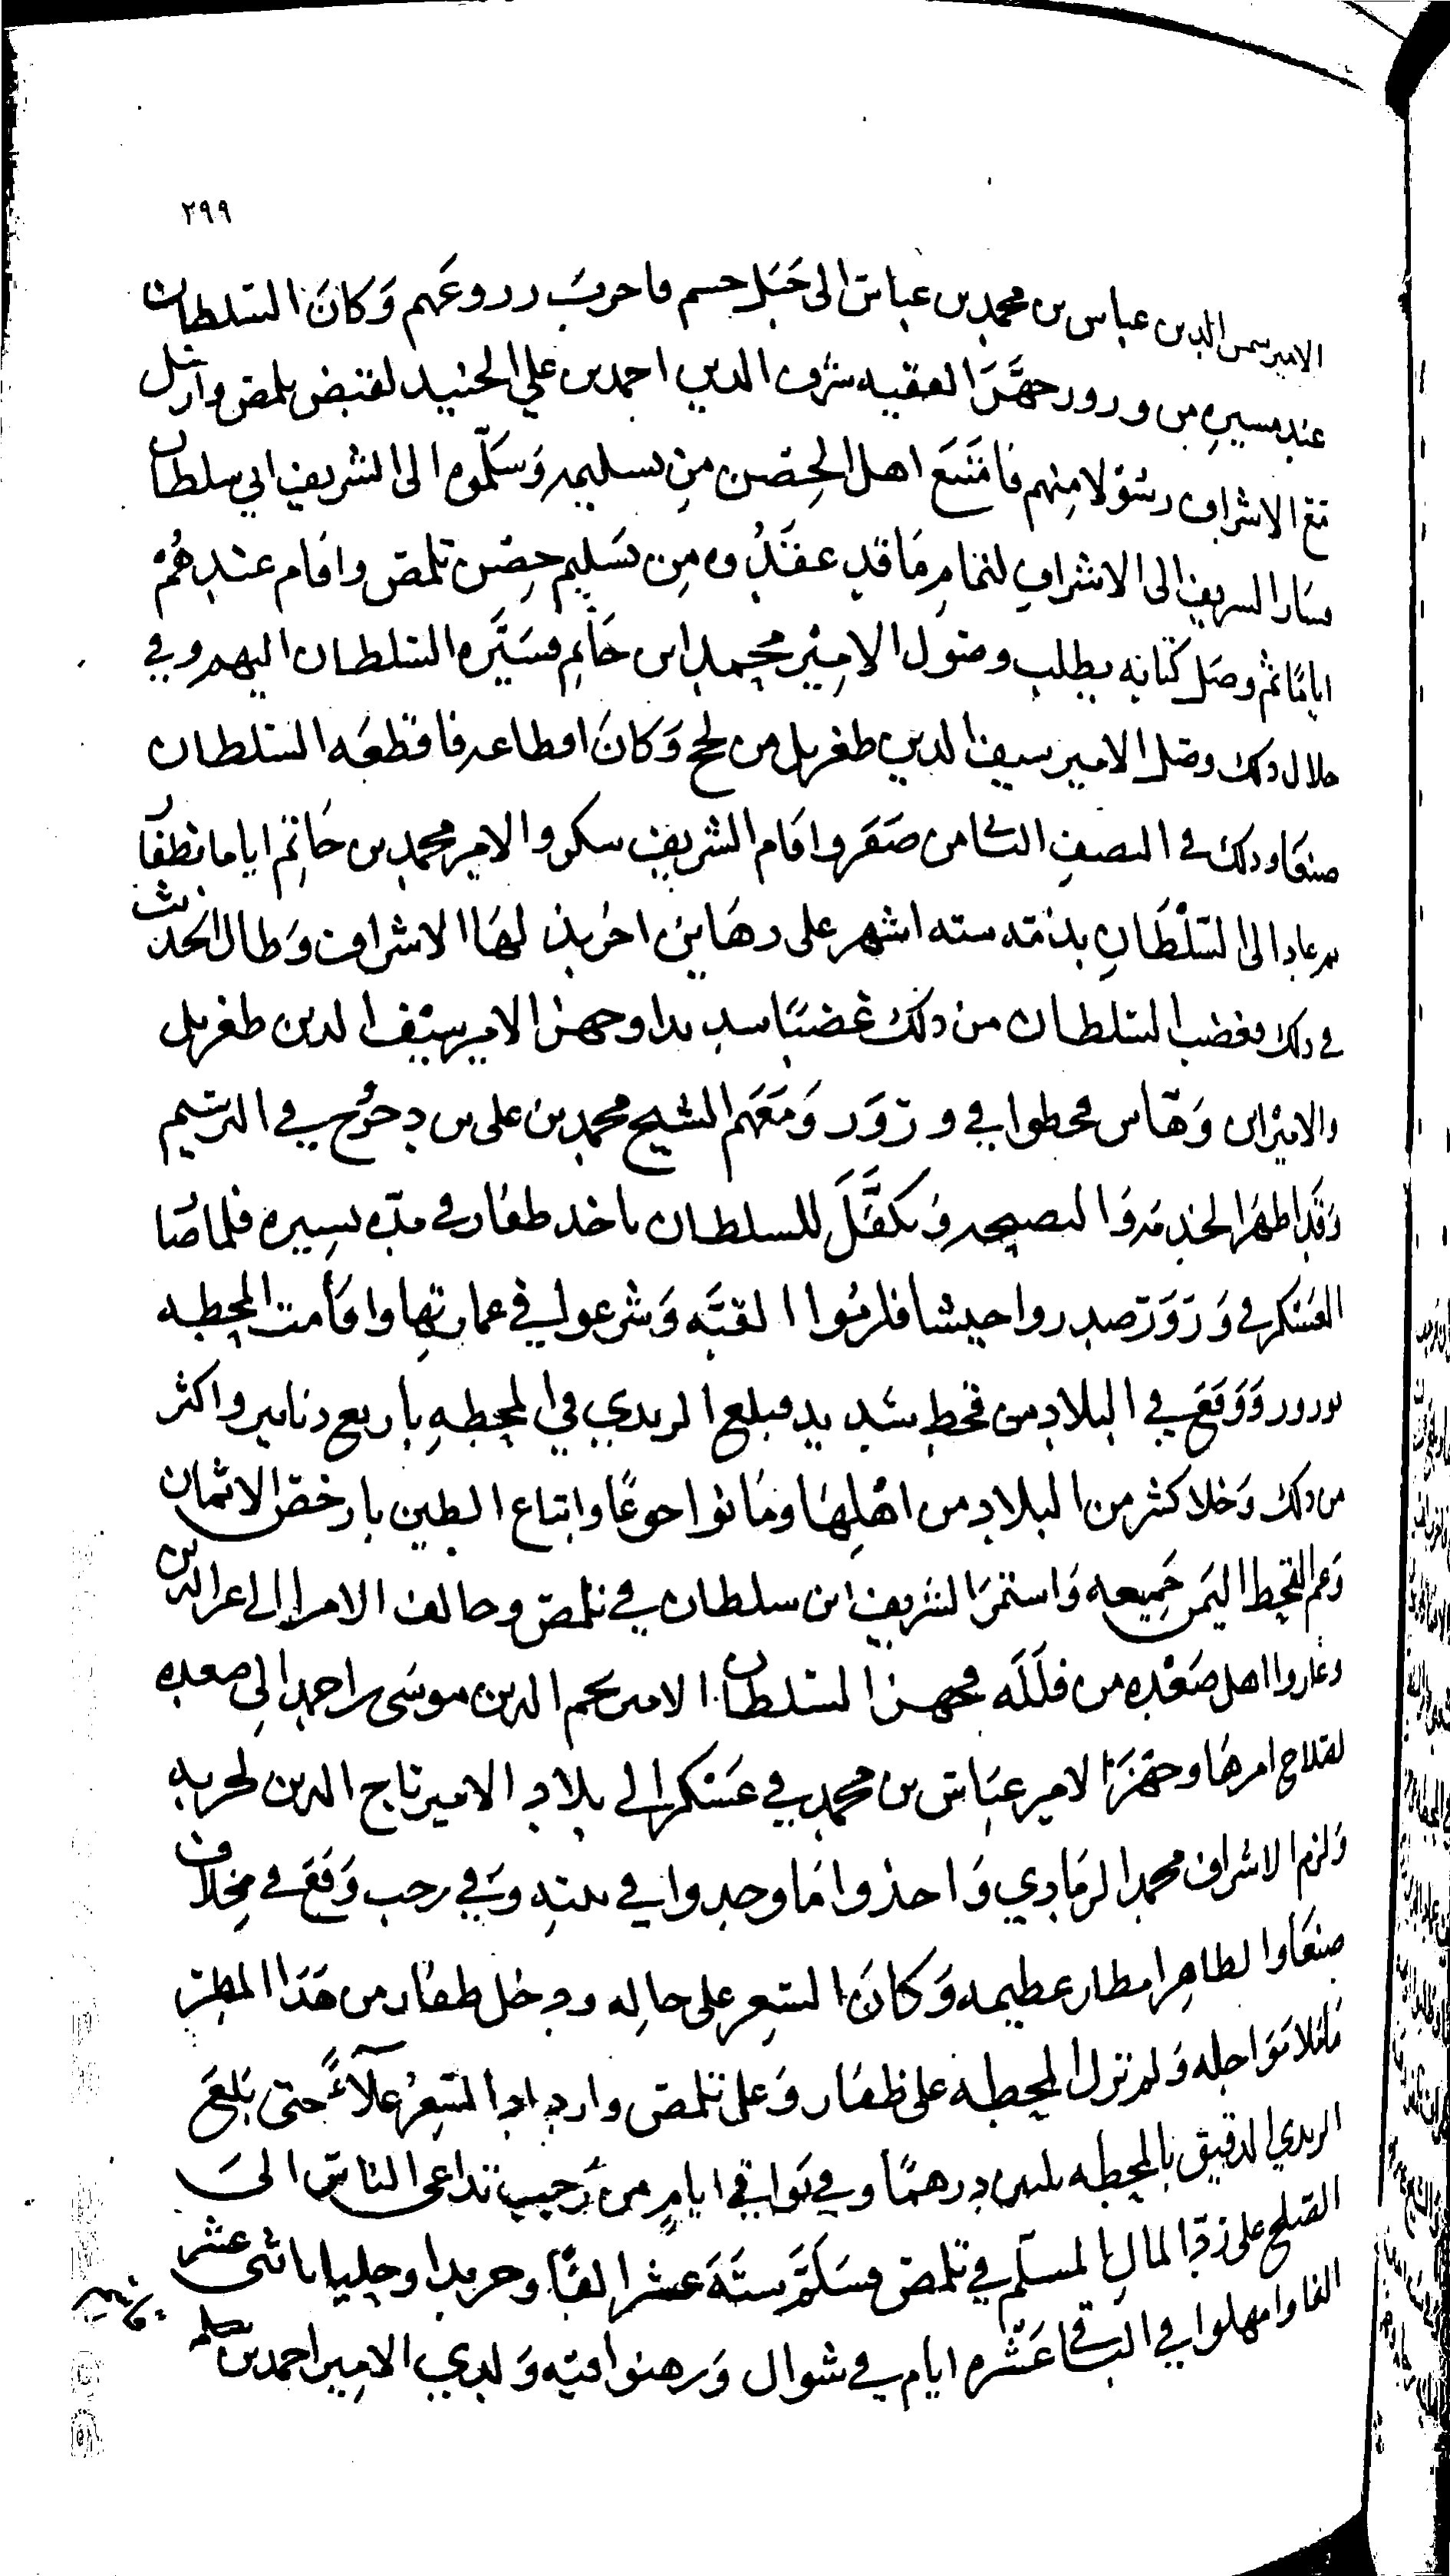 ٢٩٩
الامير شمس الدين عباس بن محمد بن عباس الى جبل حسم فاحرب زروعهم وكان السلطان
عند مسيره من ورور جهز الفقيه شرف الدين احمد بن علي الجنيد لقبض تلمص وارسل
مع الاشراف رسولا منهم فامتنع اهل الحصن من تسليمه وسلموه الى الشريف ابي سلطان
فسار الشريف الى الاشراف لتمام ما قد عقدوه من تسليم حصن تلمص واقام عندهم
اياما ثم وصل كتابه يطلب وصول الامير محمد ابن حاتم فسيره السلطان اليهم وفي
خلال ذلك وصل الامير سيف الدين طغريل من لحج وكان اقطاعه فاقطعه السلطان
صنعا وذلك في النصف الثامن صفر واقام الشريف شكر والامير محمد بن حاتم اياما بظفار
ثم عادا الى السلطان بذمة ستة اشهر على رهاين اخر بذلها الاشراف وطال الحديث
في ذلك فغضب السلطان من ذلك غضبا شديدا وجهز الامير سيف الدين طغريل
والامير ابن وهاس فحطوا في ورور ومعهم الشيخ محمد بن علي بن دحرج في الترسيم
وقد اظهر الخدمة والنصيحة وتكفل للسلطان باخذ ظفار في مدة يسيرة فلما صار
العسكر في ورور تصدروا جيشا فلزموا القبة وشرعوا في عمارتها واقامت المحطة
بورور ووقع في البلاد من قحط شديد فبلغ الزبدي في المحطه باربع دنانير واكثر
من ذلك وخلا كثر من البلاد من اهلها وماتوا جوعا وابتاع الطين بارخص الاثمان
وعم القحط اليمن جميعه واستمر الشريف ابن سلطان في تلمص وحالف الامرا الى عز الدين
وغاروا اهل صعده من فللة فجهز السلطان الامير نجم الدين موسى بن احمد الى صعده
لصلاح امرها وجهز الامير عباس بن محمد في عسكر الى بلاد الامير تاج الدين لحربه
ولزم الاشراف محمد الرمادي واخذوا ما وجدوا في بيته وفي رجب وقع في مخلاف
صنعا والظاهر امطار عظيمه وكان السعر على حاله ودخل ظفار من هذا المطر
ما ملا مواجله ولم تزل المحطه على ظفار وعلى تلمص وازداد السعر غلاء حتى بلغ
الزبدي الدقيق بالمحطه ثلثين درهما وفي بواقي ايام من رجب تداعى الناس الى
الصلح على رد المال المسلم في تلمص فسلم ستة عشر الفا وحريرا وحليا باثنى عشر
الفا وامهلوا في الباقي عشرة ايام في شوال ورهنوا فيه ولدي الامير احمد بن